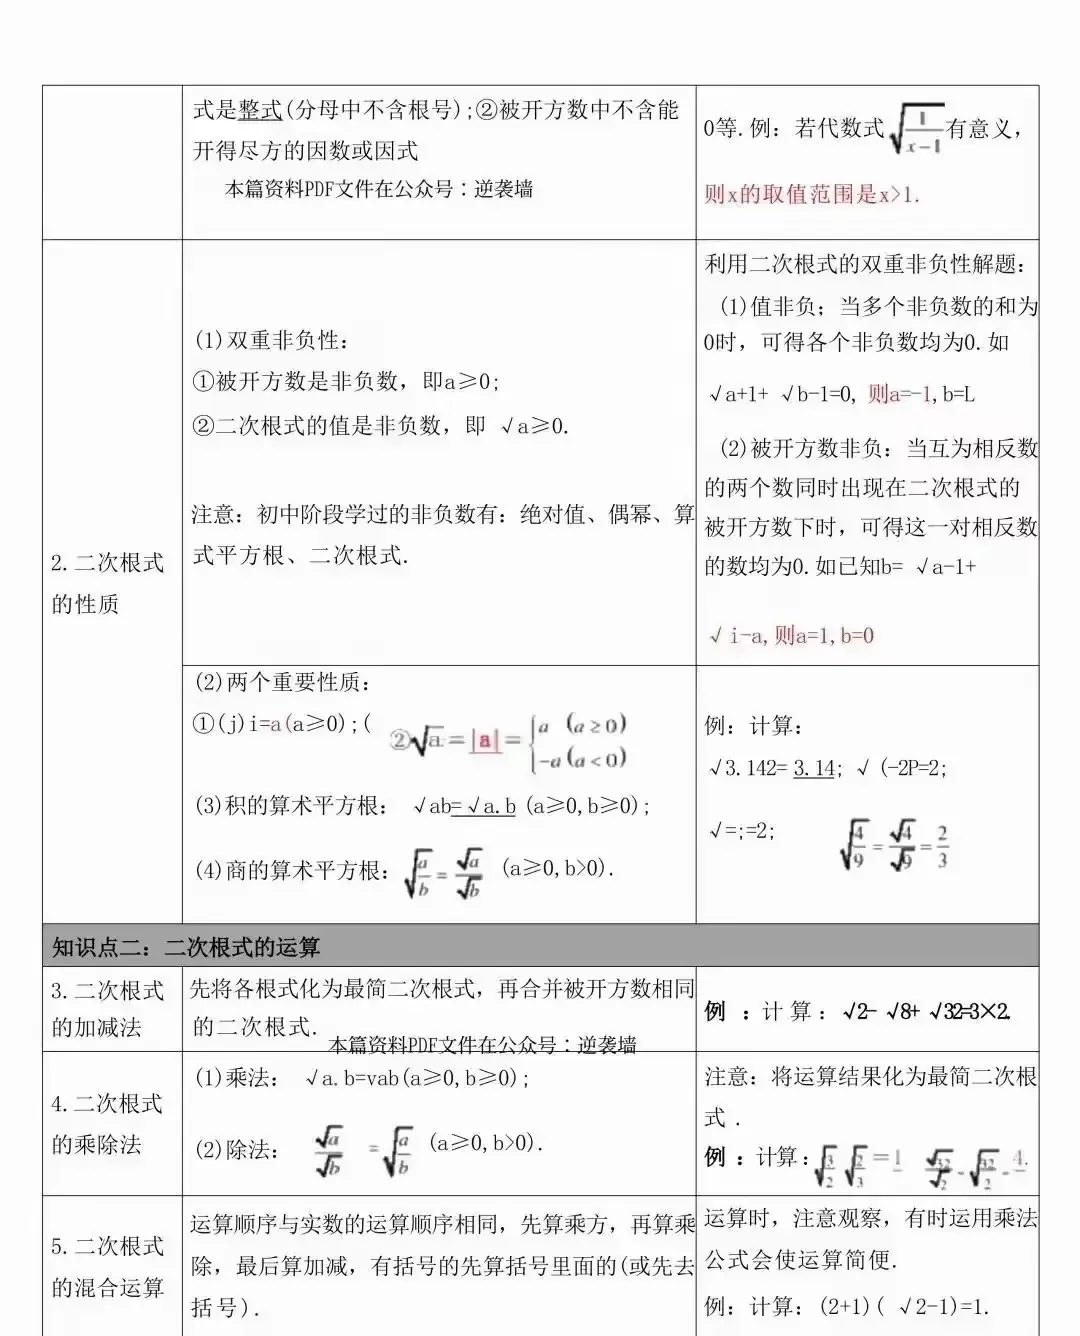 式是整式(分母中不含根号);②被开方数中不含能
开得尽方的因数或因式
本篇资料PDF文件在公众号：逆袭墙
0等.例：若代数式√(1/(x-1))有意义，
则x的取值范围是x>1.
2.二次根式
的性质
(1)双重非负性：
①被开方数是非负数，即a≥0;
②二次根式的值是非负数，即 √a≥0.
注意：初中阶段学过的非负数有：绝对值、偶幂、算
式平方根、二次根式.
利用二次根式的双重非负性解题：
(1)值非负；当多个非负数的和为
0时，可得各个非负数均为0.如
√a+1+ √b-1=0, 则a=-1,b=L
(2)被开方数非负：当互为相反数
的两个数同时出现在二次根式的
被开方数下时，可得这一对相反数
的数均为0.如已知b= √a-1+
√ i-a,则a=1,b=0
(2)两个重要性质：
①(j)i=a(a≥0);( ②√a=|a|={a (a≥0) -a(a<0)
(3)积的算术平方根： √ab=√a.b (a≥0,b≥0);
(4)商的算术平方根：√(a/b)=√a/√b (a≥0,b>0).
例：计算：
√3.142=3.14; √ (-2P=2;
√=;=2; √(4/9)=√4/√9=2/3
知识点二：二次根式的运算
3.二次根式
的加减法
先将各根式化为最简二次根式，再合并被开方数相同
的二次根式.
本篇资料PDF文件在公众号：逆袭墙
例 ：计算：√2- √8+ √32=3×2.
4.二次根式
的乘除法
(1)乘法： √a.b=vab(a≥0,b≥0);
(2)除法： √a/√b =√(a/b) (a≥0,b>0).
注意：将运算结果化为最简二次根
式 .
例 ：计算：√(3/2) √(2/3)=1 √32/√2=√(32/2)=4.
5.二次根式
的混合运算
运算顺序与实数的运算顺序相同，先算乘方，再算乘
除，最后算加减，有括号的先算括号里面的(或先去
括号).
运算时，注意观察，有时运用乘法
公式会使运算简便.
例：计算：(2+1)( √2-1)=1.